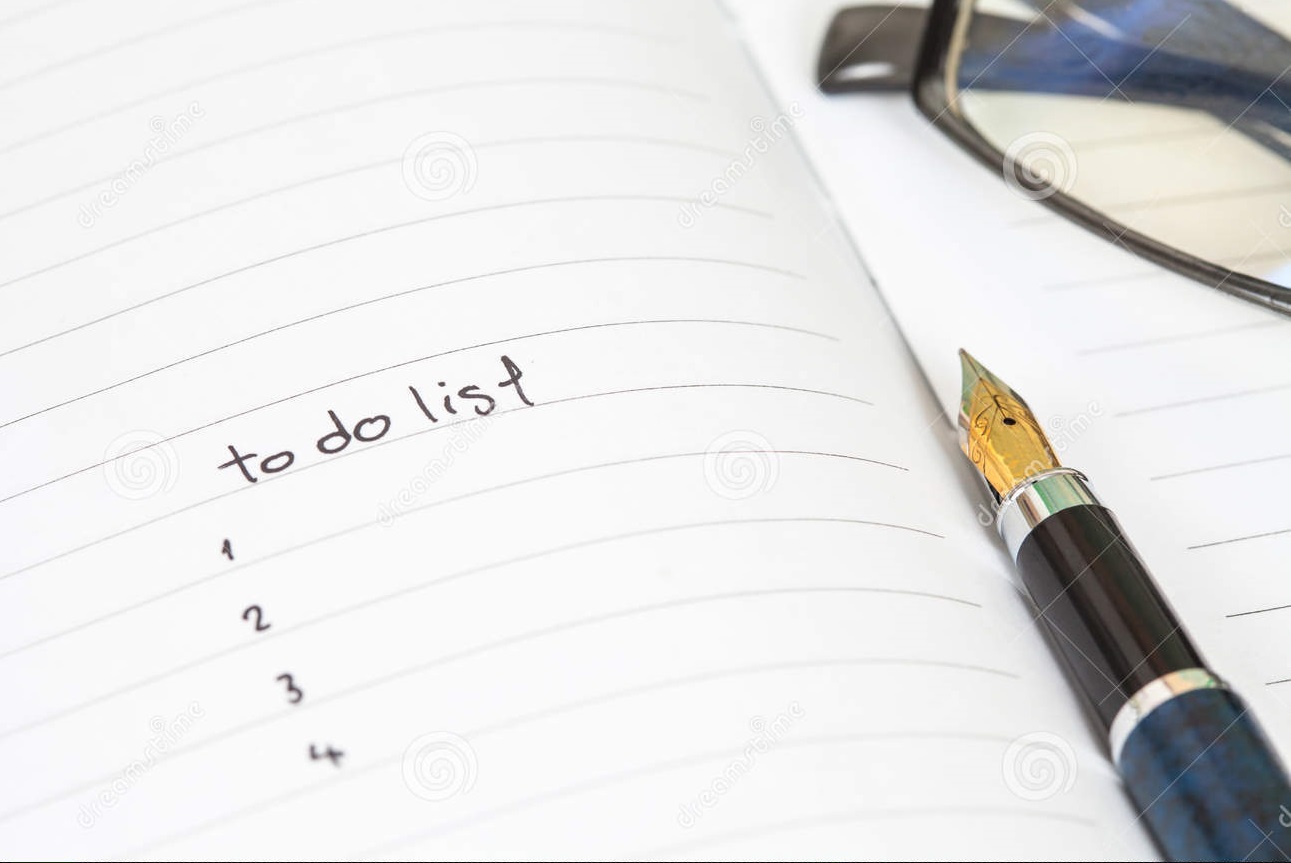 to do list
1
2
3
4
dreamstime
dreamstime
dreamstime
dreamstime
dreamstime